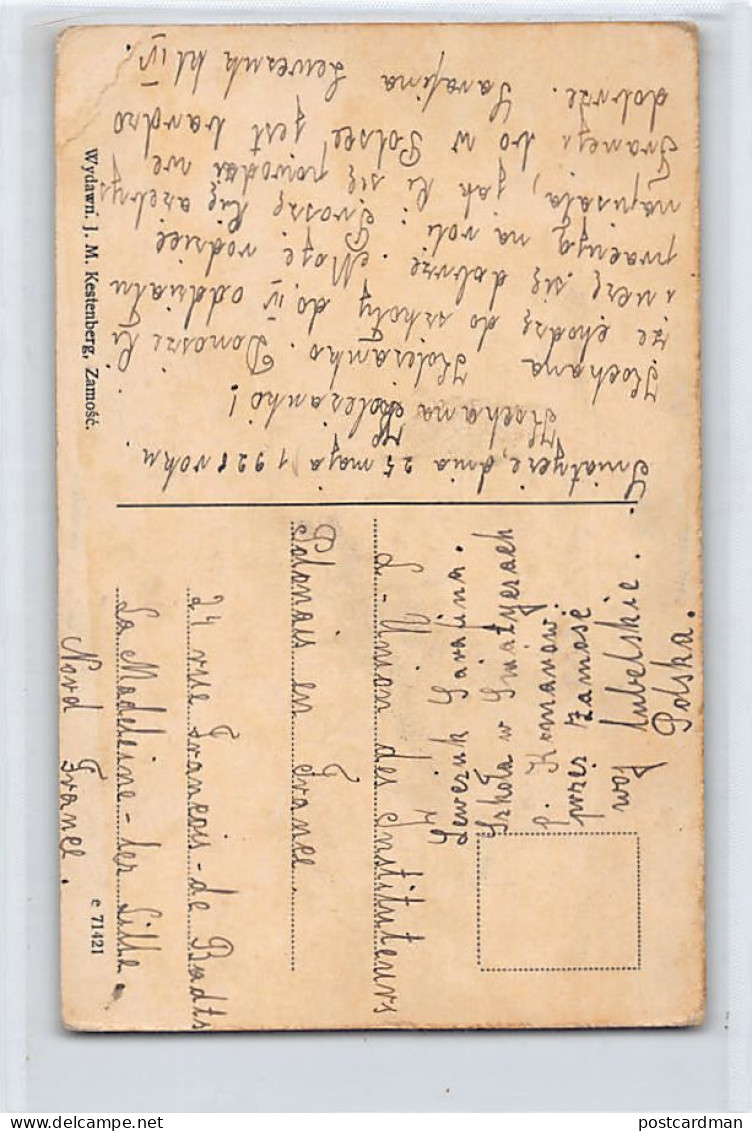 Śniatycze, dnia 25 maja 1928 roku.
Kochana Koleżanko!
Kochana Koleżanko. Donoszę Ci
że chodzę do szkoły do IV oddziału
i uczę się dobrze. Moje rodzice
pracują na roli. Proszę Cię ażebyś
napisała, jak Ci się powodzi we
Francji bo w Polsce jest bardzo
dobrze. Sarafina Lewczuk kl IV.
Wydawn. J. M. Kestenberg, Zamość.
Lewczuk Sarafina.
Szkoła w Śniatyczach
p. Komarow.
przez Zamość
woj lubelskie.
Polska.
L-Union des Instituteurs
Polonais en France.
24 rue François-de Badts
La Madeleine-lez Lille.
Nord France.
e 71421
postcardman